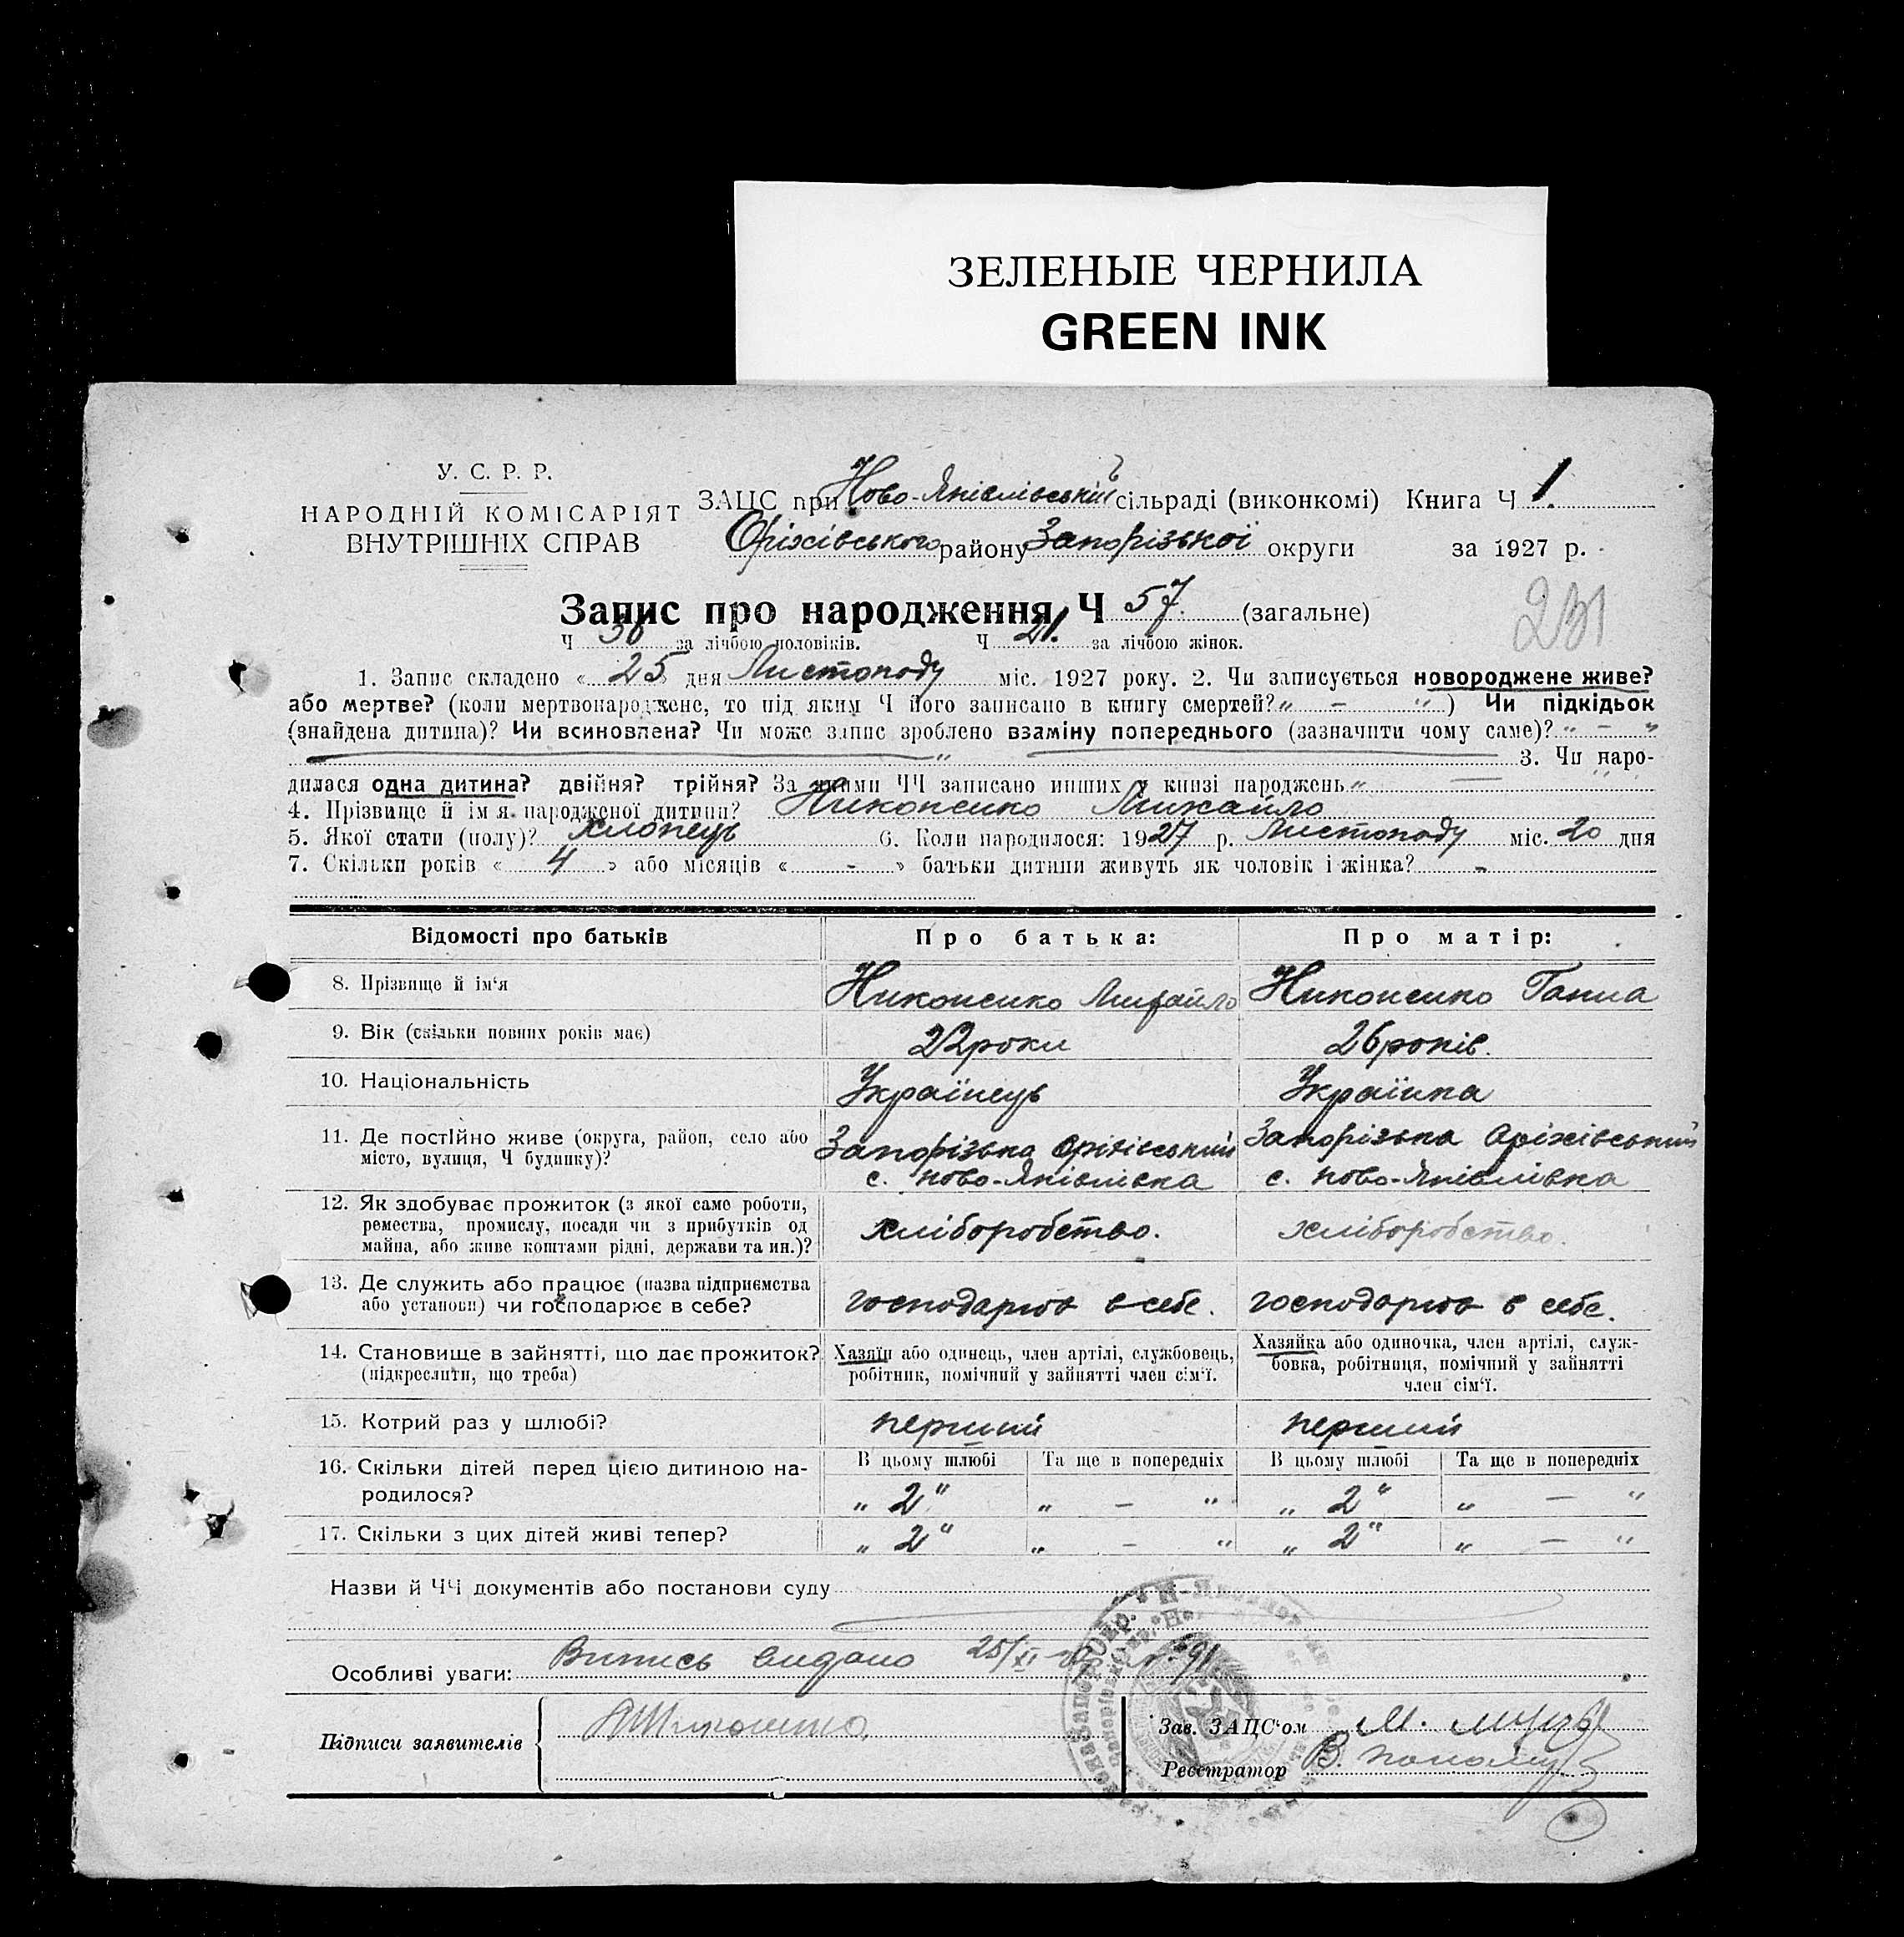 ЗЕЛЕНЫЕ ЧЕРНИЛА
GREEN INK
У. С. Р. Р.
НАРОДНІЙ КОМІСАРІЯТ
ВНУТРІШНІХ СПРАВ
ЗАЦС при Ново-Яківлівській сільраді (виконкомі) Книга Ч 1.
Оріхівського району Запорізької округи за 1927 р.
Запис про народження Ч 57. (загальне)
231
Ч 36 за лічбою чоловіків. Ч 21. за лічбою жінок.
1. Запис складено « 25 » дня Листопаду міс. 1927 року. 2. Чи записується новороджене живе?
або мертве? (коли мертвонароджене, то під яким Ч його записано в книгу смертей? „ — “ ) Чи підкідьок
(знайдена дитина)? Чи всиновлена? Чи може запис зроблено взаміну попереднього (зазначити чому саме)? „ — “
3. Чи наро-
дилася одна дитина? двійня? трійня? За якими ЧЧ записано инших у книзі народжень „ — “
4. Прізвище й ім'я народженої дитини? Никоненко Михайло
5. Якої стати (полу)? хлопець 6. Коли народилося: 1927 р. Листопаду міс. 20 дня
7. Скільки років « 4 » або місяців « - » батьки дитини живуть як чоловік і жінка? -
Відомості про батьків Про батька: Про матір:
8. Прізвище й ім'я Никоненко Михайло Никоненко Ганна
9. Вік (скільки повних років має) 22 роки 26 років.
10. Національність Українець Українка
11. Де постійно живе (округа, район, село або
місто, вулиця, Ч будинку)?
Запорізька Оріхівський
с. Ново-Яківлівка
Запорізька Оріхівський
с. Ново-Яківлівка
12. Як здобуває прожиток (з якої саме роботи,
ремества, промислу, посади чи з прибутків од
майна, або живе коштами рідні, держави та ин.)?
хліборобство. хліборобство.
13. Де служить або працює (назва підприємства
або установи) чи господарює в себе?
господарює в себе. господарює в себе.
14. Становище в зайнятті, що дає прожиток?
(підкреслити, що треба)
Хазяїн або одинець, член артілі, службовець,
робітник, помічний у зайнятті член сім'ї.
Хазяйка або одиночка, член артілі, служ-
бовка, робітниця, помічний у зайнятті
член сім'ї.
15. Котрий раз у шлюбі? перший перший
16. Скільки дітей перед цією дитиною на-
родилося?
В цьому шлюбі Та ще в попередніх В цьому шлюбі Та ще в попередніх
„ 2 “ „ — “ „ 2 “ „ — “
17. Скільки з цих дітей живі тепер? „ 2 “ „ — “ „ 2 “ „ — “
Назви й ЧЧ документів або постанови суду
Особливі уваги: Випись видано 25/XI-27 р. 91
Підписи заявителів
Зав. ЗАЦС'ом М.
Реєстратор В.